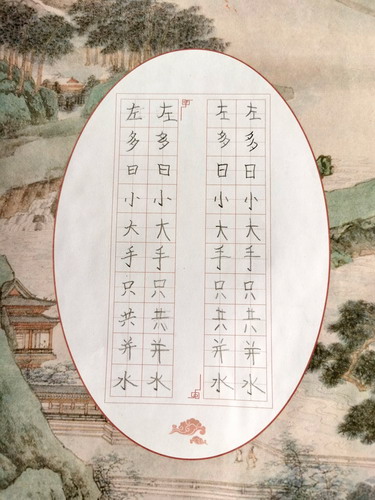 左多曰小大手只共并水
左多曰小大手只共并水
左多曰小大手只共并水
左多曰小大手只共并水